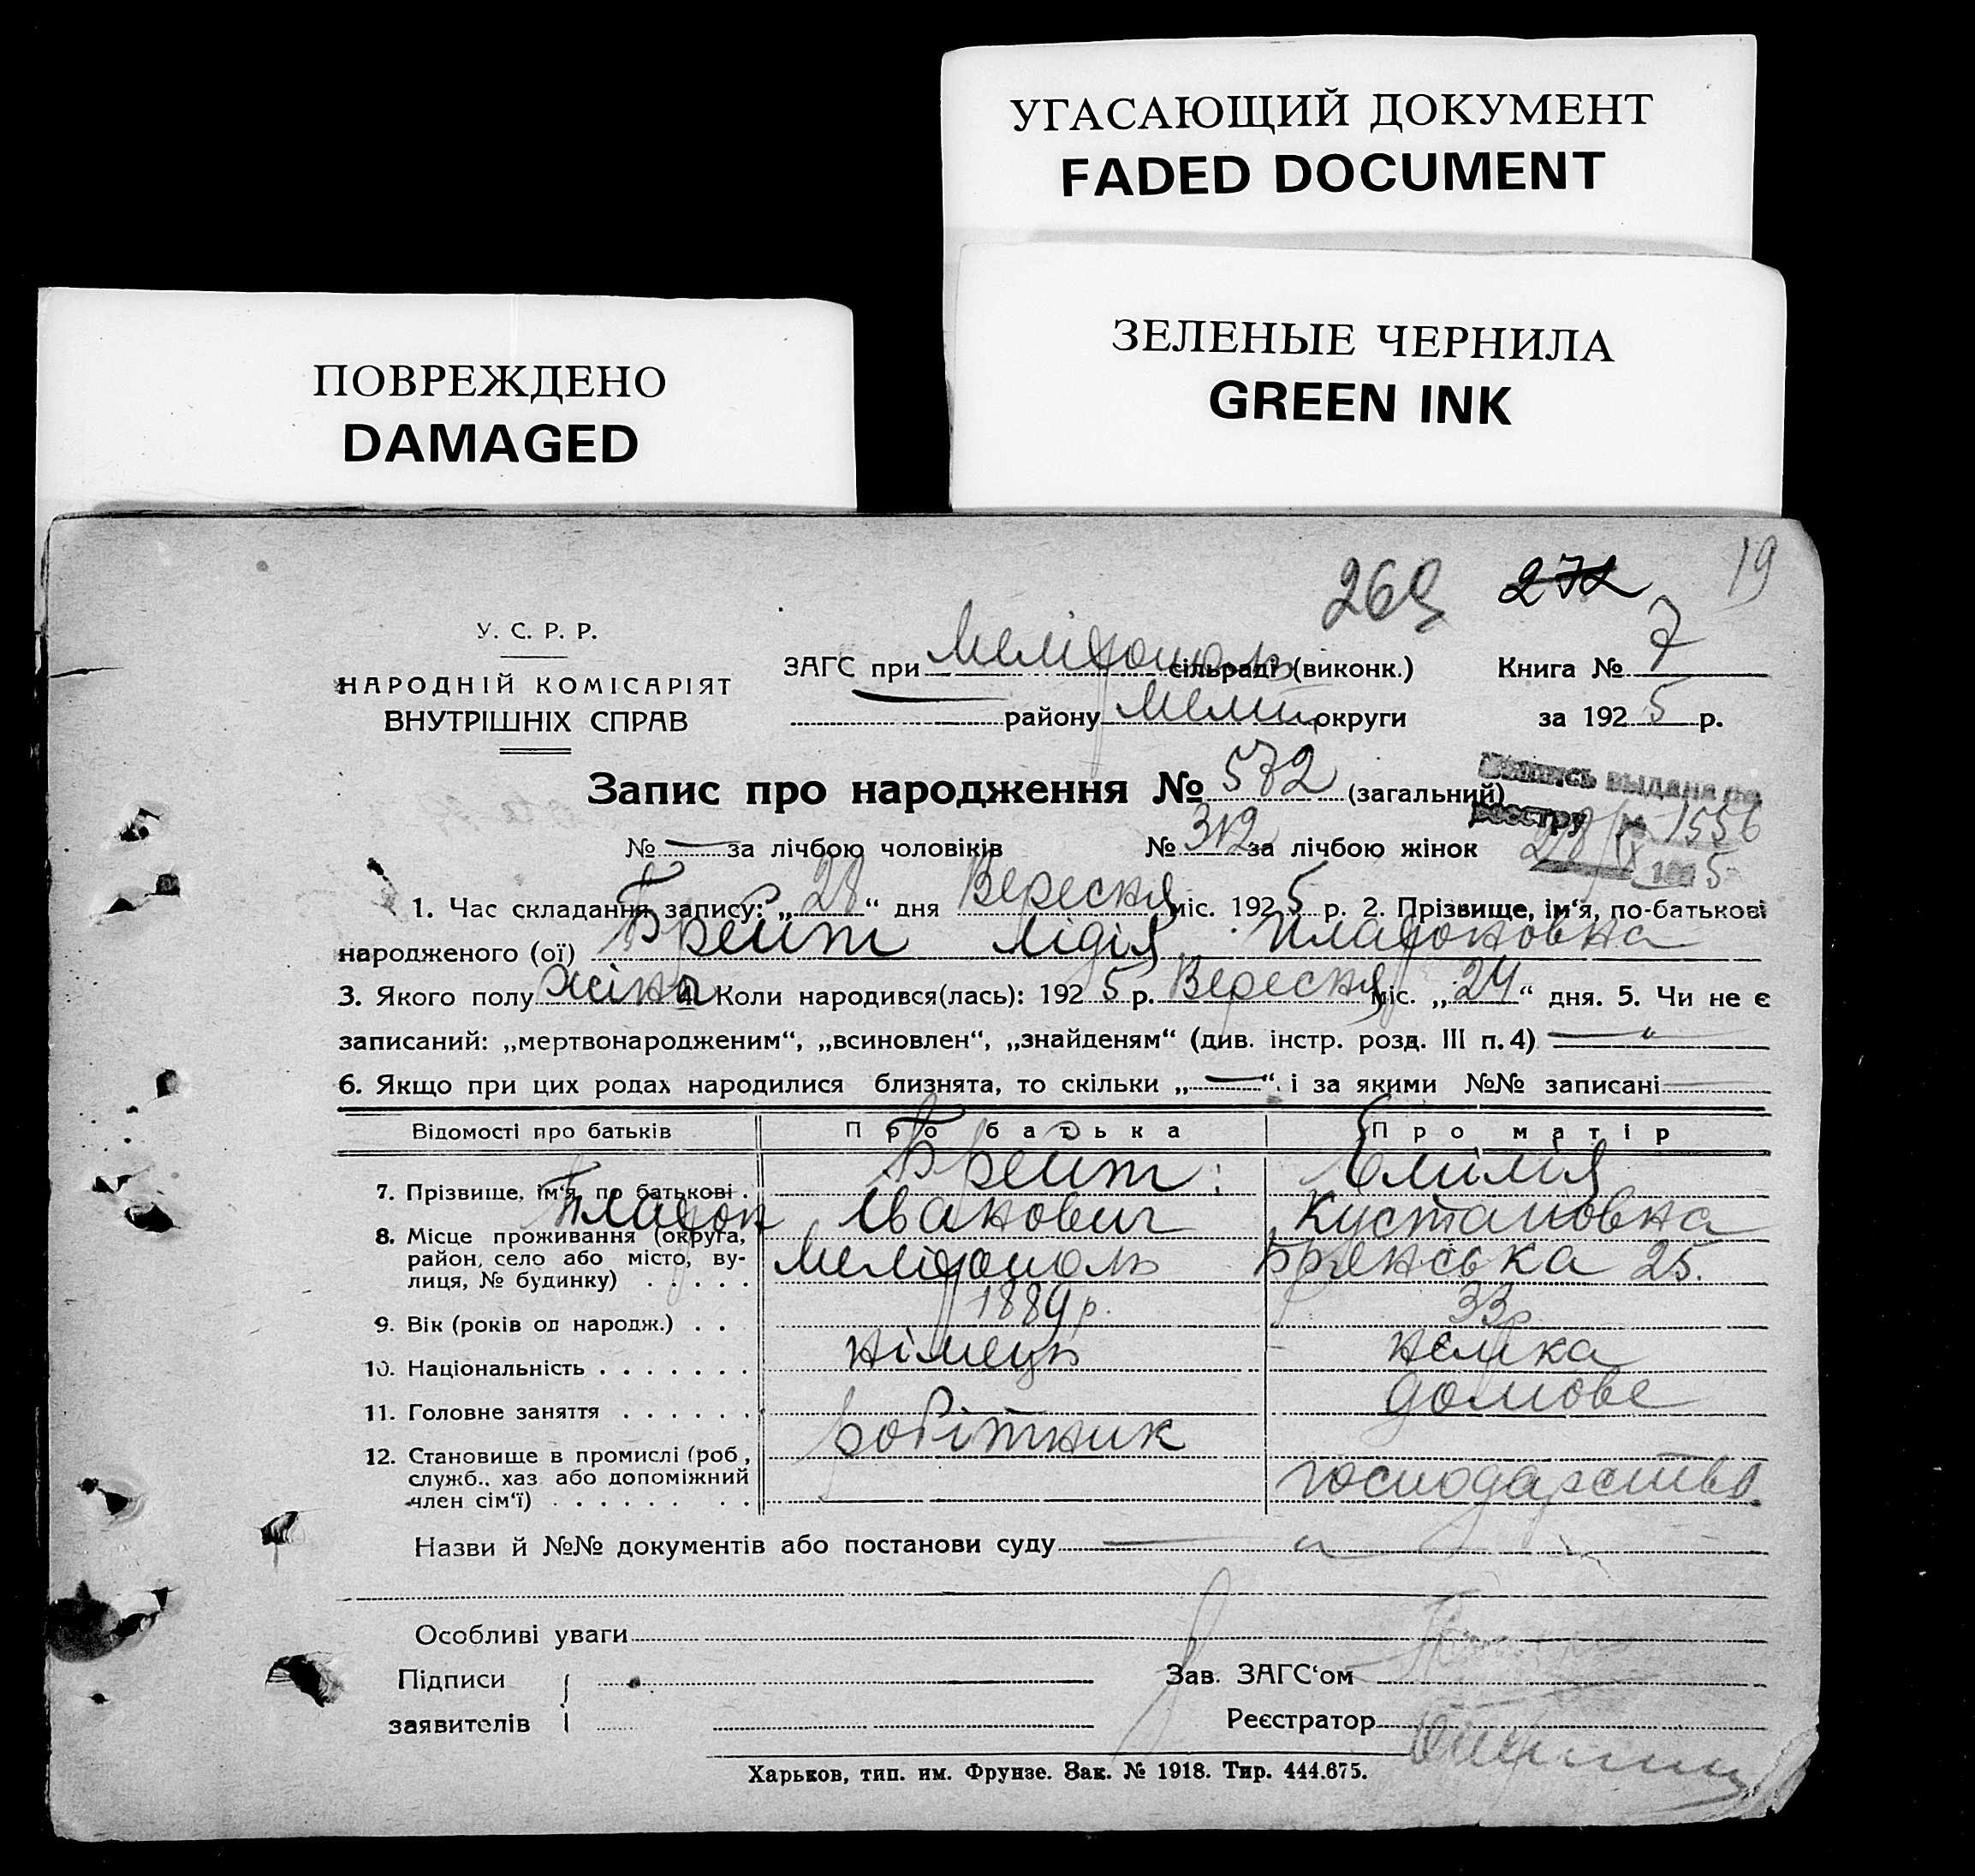 УГАСАЮЩИЙ ДОКУМЕНТ
FADED DOCUMENT
ЗЕЛЕНЫЕ ЧЕРНИЛА
GREEN INK
ПОВРЕЖДЕНО
DAMAGED
269 272 19
У. С. Р. Р.
НАРОДНІЙ КОМІСАРІЯТ
ВНУТРІШНІХ СПРАВ
ЗАГС при Мелітополь сільраді (виконк.) Книга № 7
району Меліт округи за 1925 р.
Запис про народження № 572 (загальний)
выдана по
реестру № 1556
28/IX 1925
№ — за лічбою чоловіків № 312 за лічбою жінок
1. Час складання запису: „28“ дня Вересня міс. 1925 р. 2. Прізвище, ім‘я, по-батькові
народженого (ої) Брейт Лідія Платоновна
3. Якого полу жіноч 4. Коли народився(лась): 1925 р. Вересня міс. „24“ дня. 5. Чи не є
записаний: „мертвонародженим“, „всиновлен“, „знайденям“ (див. інстр. розд. III п. 4) — „
6. Якщо при цих родах народилися близнята, то скільки „—“ і за якими №№ записані —
Відомості про батьків Про батька Про матір
7. Прізвище, ім‘я, по батькові . Брейт Емілія
Платон Іванович Кустановна
8. Місце проживання (округа, район, село або місто, ву-
лиця, № будинку) . . . . . Мелітополь Брянська 25.
9. Вік (років од народж.) . . 1889 р. 33 р.
10. Національність . . . . . . . німець немка
11. Головне заняття . . . . . . робітник домове
12. Становище в промислі (роб.,
служб., хаз. або допоміжний
член сім‘ї) . . . . . . . . господарство.
Назви й №№ документів або постанови суду — „
Особливі уваги
Підписи Зав. ЗАГС‘ом
заявителів Реєстратор
Харьков, тип. им. Фрунзе. Зак. № 1918. Тир. 444.675.